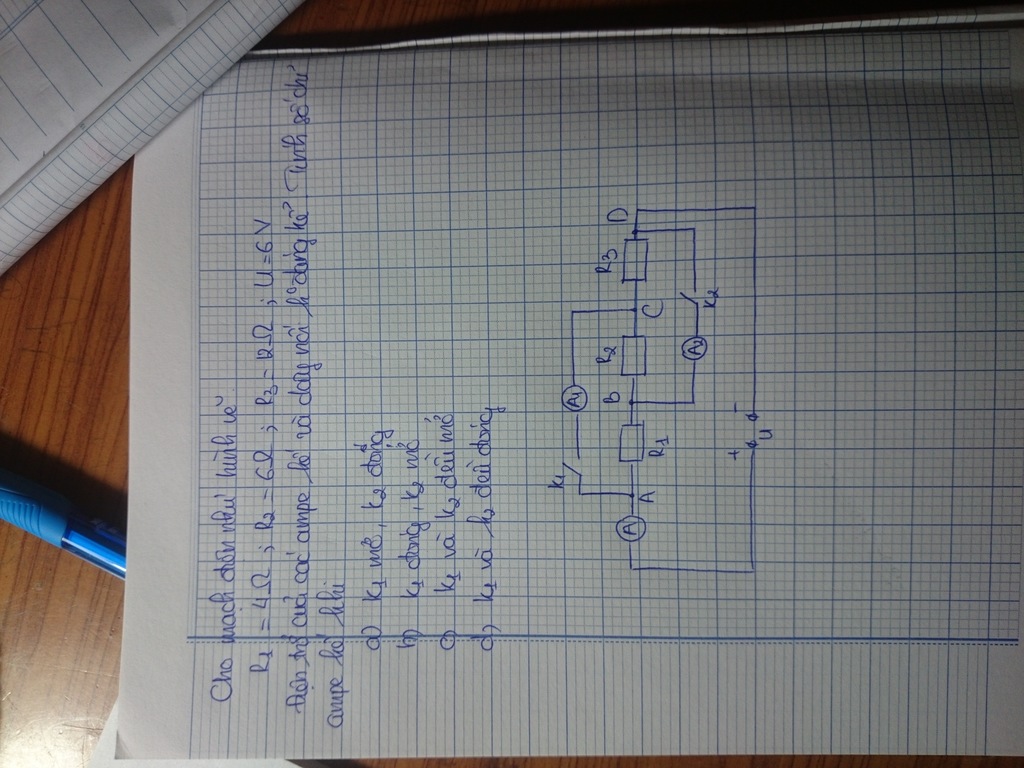 Cho mạch điện như hình vẽ
R1 = 4Ω ; R2 = 6Ω ; R3 = 12Ω ; U = 6V
Điện trở của các ampe kế và dây nối k° đáng kể Tính số chỉ
ampe kế khi
a) k1 mở, k2 đóng
b) k1 đóng, k2 mở
c) k1 và k2 đều mở
d) k1 và k2 đều đóng
K1 A1
A A R1 B R2 C R3 D
A2 K2
+ U -